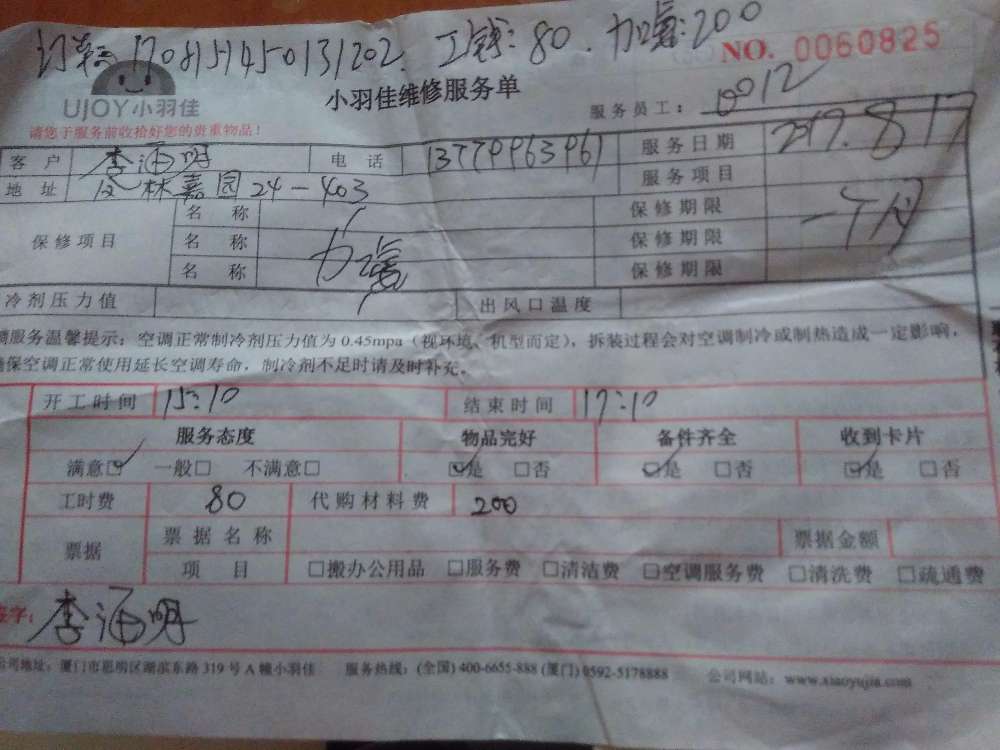 订单1708151450131202. 工钱:80. 加氟:200
NO. 0060825
UJOY小羽佳
小羽佳维修服务单
服务员工: 0012
请您于服务前收拾好您的贵重物品!
客户 李海明 电话 13779963961 服务日期 2017.8.17
地址 林嘉园24-403 服务项目
保修项目 名称 保修期限 一个月
名称 加氟 保修期限
名称 保修期限
冷剂压力值 出风口温度
调服务温馨提示:空调正常制冷剂压力值为0.45mpa(视环境、机型而定),拆装过程会对空调制冷或制热造成一定影响,
确保空调正常使用延长空调寿命,制冷剂不足时请及时补充。
开工时间 15:10 结束时间 17:10
服务态度 物品完好 备件齐全 收到卡片
满意☑ 一般□ 不满意□ ☑是 □否 ☑是 □否 ☑是 □否
工时费 80 代购材料费 200
票据 票据名称 票据金额
项目 □搬办公用品 □服务费 □清洁费 □空调服务费 □清洗费 □疏通费
签字: 李海明
公司地址:厦门市思明区湖滨东路319号A幢小羽佳 服务热线:(全国)400-6655-888(厦门)0592-5178888 公司网站:www.xiaoyujia.com